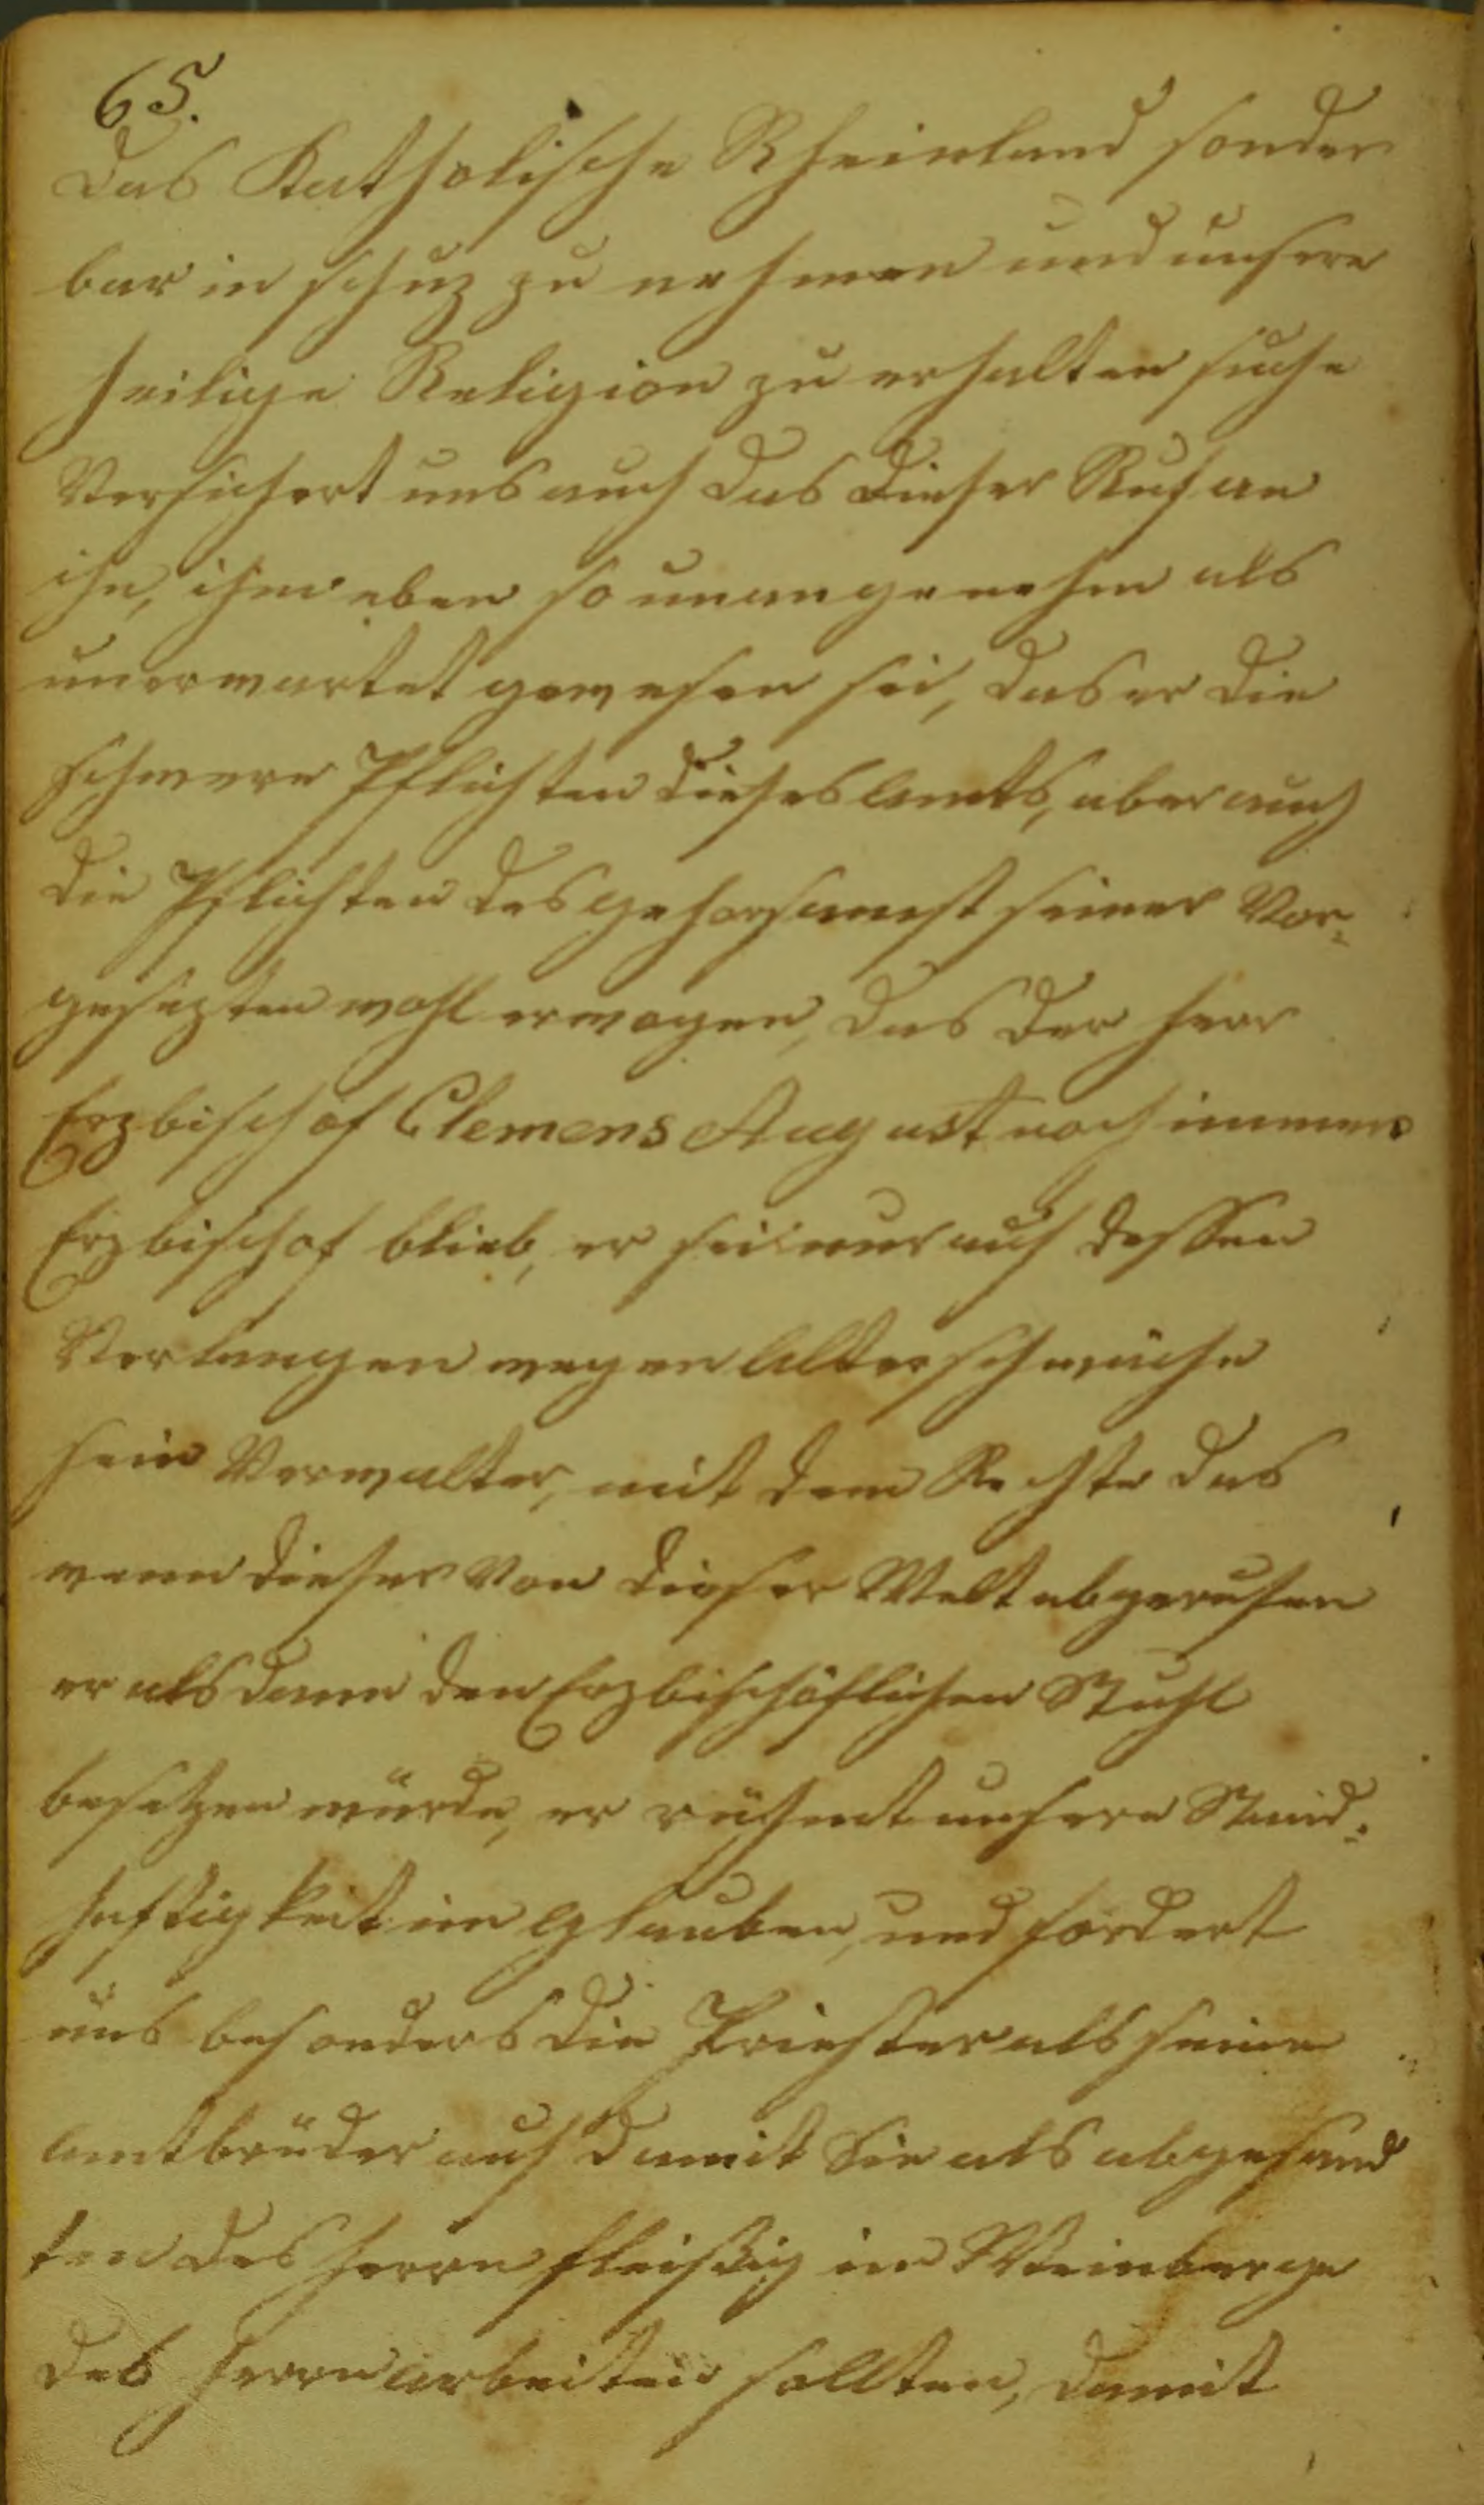 65.
das Katholische Rheinland sonder
bar in schuz zu nehmen und unsere
heilige Religion zu erhalten suche
Versichert uns auch das dieser Ruf an
ihn, ihm eben so unangenehm als
unerwartet gewesen sei, das er die
schwere Pflichten dieses Amts, aber auch
die Pflichten des gehorsamst seiner Vor-
gesezten wohl erwogen, das der Herr
Erzbischof Clemens August noch immer
Erzbischof blieb, er sei nur auf dessen
Verlangen wegen Alterschwäche
sein Verwalter, mit dem Rechte das
wenn dieser von dieser Welt abgerufen
er als dann den Erzbischöflichen Stuhl
besetzen würde, er rühmt unsere Stand-
haftigkeit im Glauben, und fordert
uns besonders die Priester als seine
Amtbrüder auf damit Sie als abgesand
ten des Herrn fleißig im Weinberge
des Herrn arbeiten sollten, damit